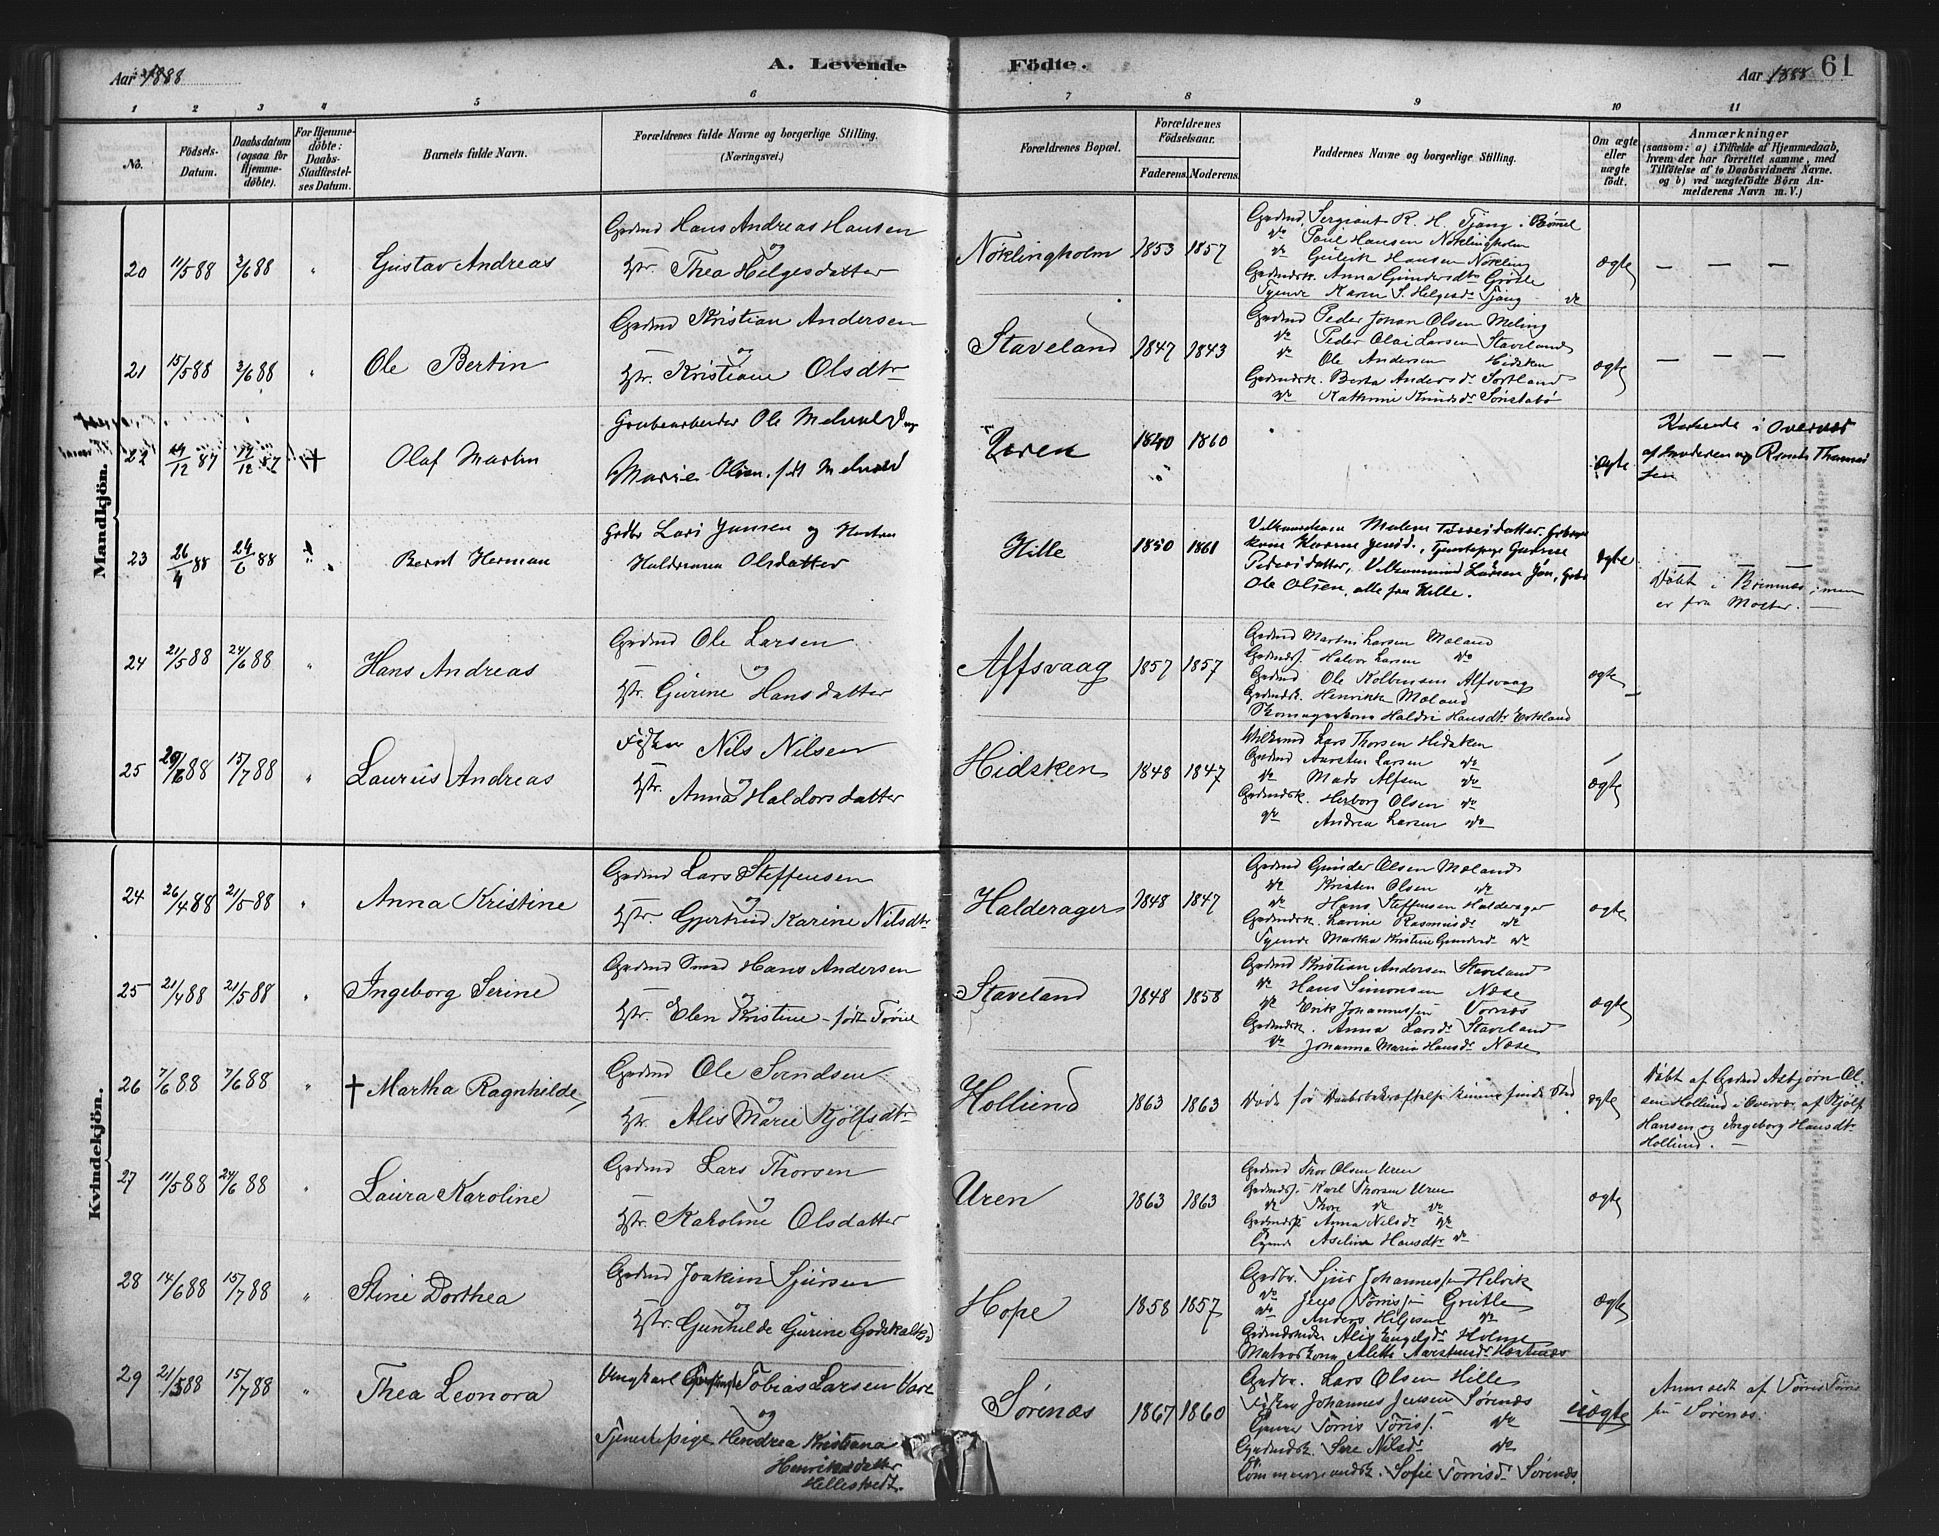 Aar 1888
A. Levende Födte.
Aar 1888 61
1 2 3 4 5 6 7 8 9 10 11
No.
Födsels-Datum.
Daabsdatum (ogsaa for Hjemme-döbte).
For Hjemme-döbte: Daabs-Stadfæstel-ses Datum.
Barnets fulde Navn.
Forældrenes fulde Navne og borgerlige Stilling. (Næringsvei.)
Forældrenes Bopæl.
Forældrenes Födselsaar.
Faderens. Moderens.
Faddernes Navne og borgerlige Stilling.
Om ægte eller uægte födt.
Anmærkninger
(saasom: a) i Tilfælde af Hjemmedaab, hvem der har forrettet samme, med Tilföielse af to Daabsvidners Navne. og b) ved uægtefödte Börn An-melderens Navn m. V.)
Mandkjön.
20 11/5 88 3/6 88 " Gustav Andreas
Grdmd Hans Andreas Hansen
og
Hstr. Thea Helgesdatter
Nöklingholm 1853 1857
Grdmd Sergiant R. H. Tjong. Bömmel
do Poul Hansen Nöklingholm
do Gulerik Hansen Nökling
Grdmdsk. Anna Gundersdtr Grötle
Tjende Karen S. Helgesdr Tjong
ægte — — —
21 15/5 88 3/6 88 " Ole Bertin
Grdmd Kristian Andersen
og
Hstr. Kristiane Olsdtr
Staveland 1847 1843
Grdmd Peder Johan Olsen Meling
do Peder Olai Larsen Staveland
do Ole Andersen Hidsken
Grdmdsk. Berta Andersdr Sortland
do Kathrine Knudsdr Sönstabö
ægte — — —
22 29/12 87 29/12 87 + Olaf Martin
Grubearbeider Ole Melvold og
Marie Olsen, födt Melvold
Uren 1840 1860
ægte
i Overvær
af Moderen og
23 26/4 88 24/6 88 Bernt Herman
Grdbr Lars Jansen og Hustru
Haldrianna Olsdatter
Hille 1850 1861
Pedersdatter,
Ole Olsen, alle fra Hille.
ægte
Döbt i Bremnes, men
er fra Moster. —
24 21/5 88 24/6 88 " Hans Andreas
Grdmd Ole Larsen
og
Hstr. Gurine Hansdatter
Alfsvaag 1857 1857
Grdmd Martin Larsen Mæland
Grdmds. Halvor Larsen do
Grdmd Ole Kolbensen Alfsvaag
Grdmdsk. Henrikke Mæland
Skomagerkone Haldri Hansdtr Eekeland
ægte
25 29/6 88 15/7 88 " Laurits Andreas
Fisker Nils Nilsen
og
Hstr. Anna Haldorsdatter
Hidsken 1848 1847
Lars Thorsen Hidsken
Grdmd Aarsten Larsen do
do Mads Alfsen do
Grdmdsk. Herborg Olsen do
do Andrea Larsen do
ægte
Kvindekjön.
24 26/4 88 21/5 88 " Anna Kristine
Grdmd Lars Steffensen
og
Hstr. Gjertrud Karine Nilsdtr
Halderager 1848 1847
Grdmd Gunder Olsen Mæland
do Kristen Olsen do
do Hans Steffensen Halderager
Grdmdsk. Larine Rasmusdr do
Tjende Martha Kristine Gundersd do
ægte
25 21/4 88 21/5 88 " Ingeborg Serine
Grdmd Smed Hans Andersen
og
Hstr. Elen Kristine – födt
Staveland 1848 1858
Grdmd Kristian Andersen Staveland
do Hans Simonsen Næse
do Erik Johannessen Vornæs
Grdmdsk. Anna Larsdr Staveland
do Johanna Maria Hansdr Næse
ægte
26 7/6 88 7/6 88 " + Martha Ragnhilde
Grdmd Ole Svendsen
og
Hstr. Alis Marie Kjölfsdtr
Hollund 1863 1863
Döde för Daabsbekræftelse kunne finde Sted
ægte
Döbt af Grdmd Asbjörn Ol-
sen Hollund i Overvær af Kjölf
Hansen og Ingeborg Hansdtr
Hollund. —
27 11/5 88 24/6 88 " Laura Karoline
Grdmd Lars Thorsen
og
Hstr. Karoline Olsdatter
Uren 1863 1863
Grdmd Thor Olsen Uren
Grdmds. Karl Thorsen Uren
do Thore do do
Anna Nilsdr do
Tjende Aseline Hansdtr do
ægte
28 14/6 88 15/7 88 " Stine Dorthea
Grdmd Joakim Sjursen
og
Hstr. Gunhilde Gurine Godskalksd
Hope 1858 1857
Grdbr. Sjur Johannessen Helvik
do Jens Torrissen Grutle
do Anders Helgesen do
Alis Engelsdr Holme
Matroskone Alette Aarstensdr Hestenæs
ægte
29 21/5 88 15/7 88 " Thea Leonora
Ungkarl Tobias Larsen Vare
og
Tjenestepige Hendrea Kristiana
Henriksdatter
Hellestvedt.
Sørenæs 1867 1860
Grdbr. Lars Olsen Hille
Fisker Johannes Jensen Sørenæs
Torris Torriss. do
Grdmdsk. Sere Nilsdr do
Sofie Torrisdr Sørenæs.
uægte
Anmeldt af Torris Torris-
sen Sørenæs.